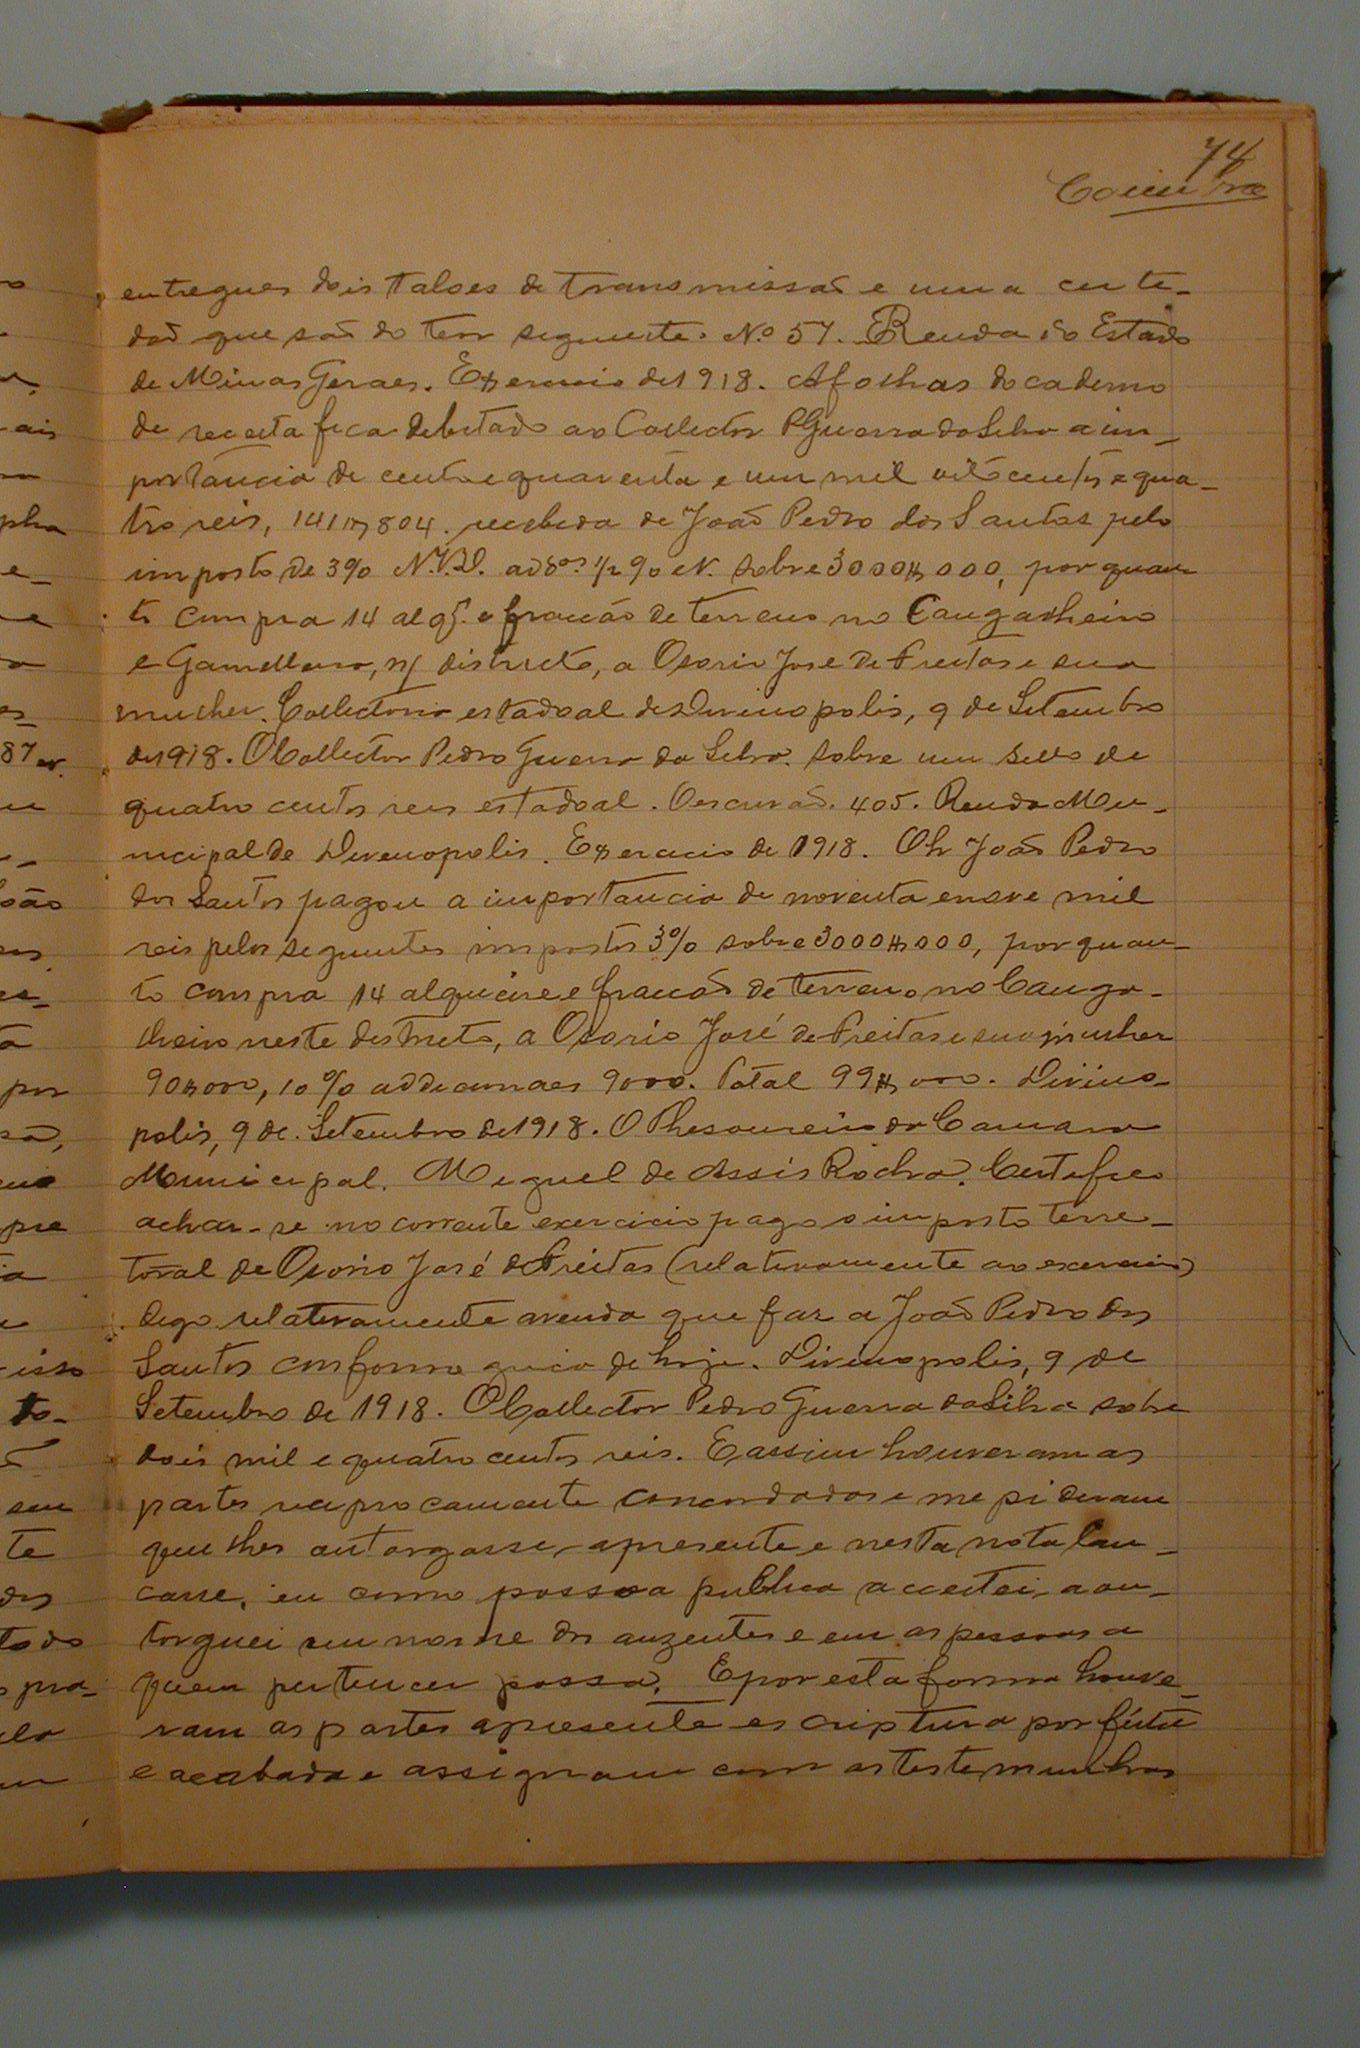 74
Coimbra
entregues dois taloes de transmissaõ e uma certi-
daõ que saõ do teor seguinte. Nº 57. Renda do Estado
de Minas Geraes. Exercicio de 1918. A folhas do caderno
de receita fica debitado ao Collector PGuerra da Silva a im-
portancia de cento e quarenta e um mil oitocentos e qua-
tro reis, 141$804. recebida de Joaõ Pedro dos Santos pelo
imposto de 3% N.V.D. addºs 1/2 % e N. sobre 3000$000, por quan-
to compra 14 alqs. e fracção de terreno no
e Gamelleira, n/ districto, a Osorio José de Freitas e sua
mulher. Collectoria estadoal de Divinopolis, 9 de Setembro
de 1918. O Collector Pedro Guerra da Silva. Sobre um sello de
quatro centos reis estadoal. O escrivaõ. 405. Renda Mu-
nicipal de Divinopolis. Exercicio de 1918. O Sr João Pedro
dos Santos pagou a importancia de noventa e nove mil
reis pelos seguintes impostos 3% sobre 3000$000, por quan-
to compra 14 alqueire e fracçaõ de terreno no Canga-
lheiro neste districto, a Osorio José de Freitas e sua mulher
90$000, 10% addicionaes 9000. Total 99$000. Divino-
polis, 9 de Setembro de 1918. O Thesoureiro da Camara
Municipal. Miguel de Assis Rocha. Certifico
achar-se no corrente exercicio pago o imposto terri-
torial de Osorio José de Freitas (relativamente ao exercicio)
digo relativamente a venda que faz a João Pedro dos
Santos conforme guia de hoje. Divinopolis, 9 de
Setembro de 1918. O Collector Pedro Guerra da Silva sobre
dois mil e quatro centos reis. E assim houveram as
partes reciprocamente concordadas e me pideram
que lhes outorgasse a presente e nesta nota lan-
casse, eu como possoa publica acceitei, a ou-
torguei em nome dos auzentes e em as pessoas a
quem pertencer possa. E por esta forma houve-
ram as partes a presente escriptura por feita
e acabada e assignam com as testemunhas